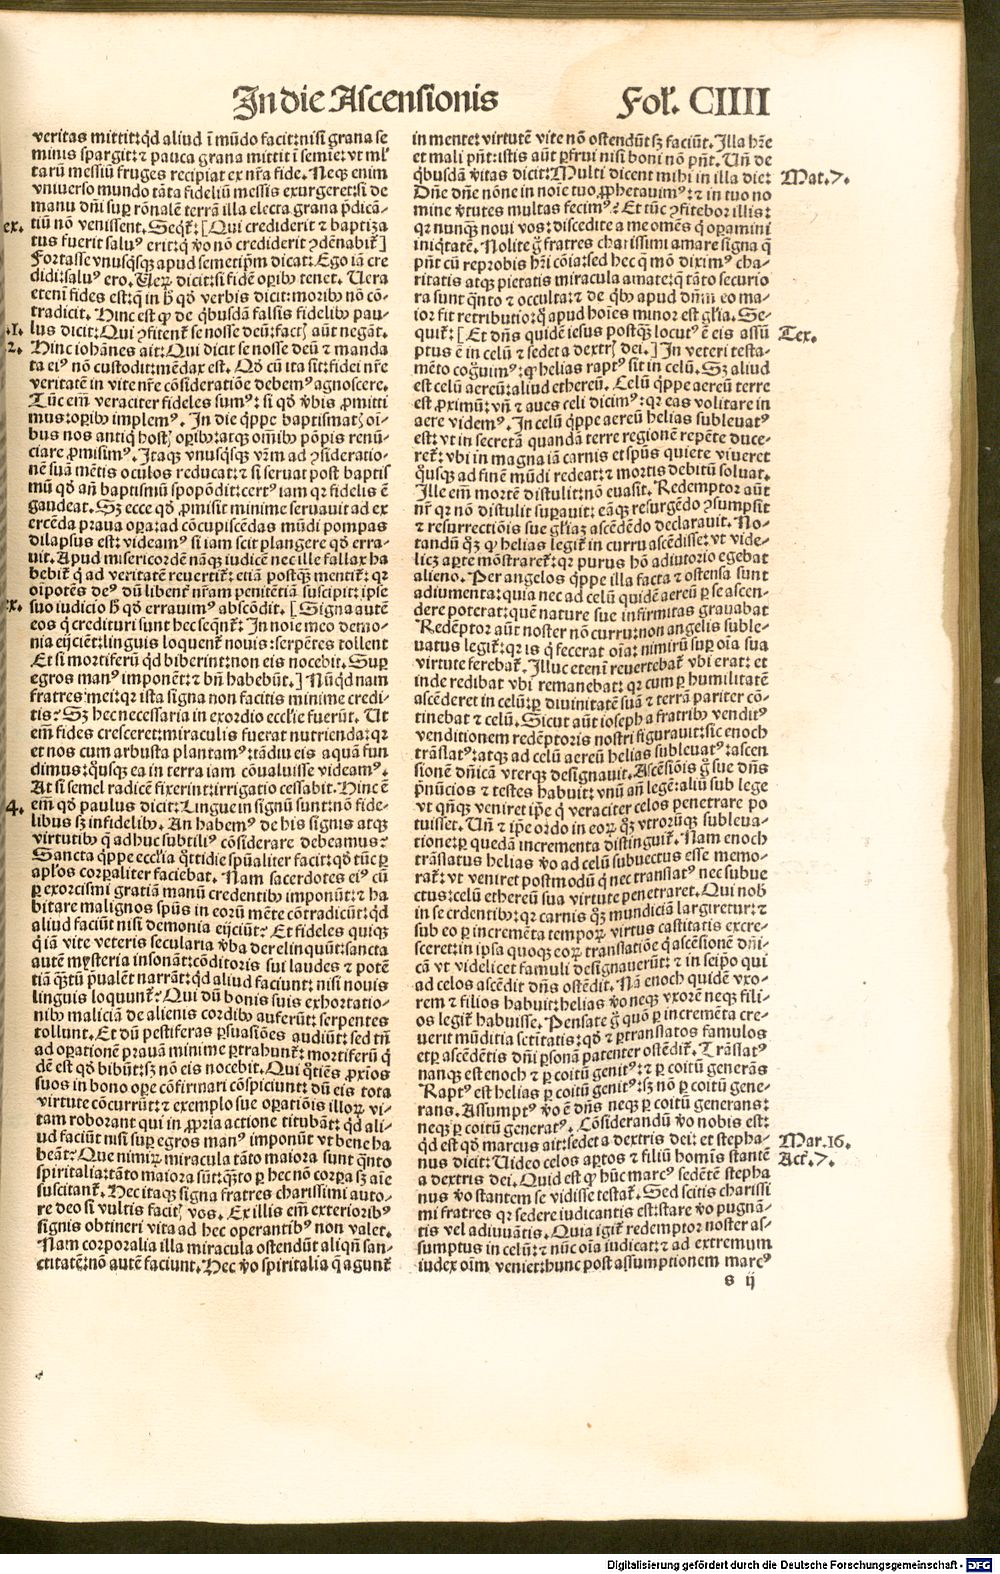 In die Ascensionis Fol. CIIII
veritas mittit: qd aliud ī mūdo facit: nisi grana se
minis spargit: ⁊ pauca grana mittit ī semie: vt ml'
tarū messiū fruges recipiat ex nr̄a fide. Neqꝫ enim
vniuerso mundo tāta fideliū messis exurgeret: si de
manu dn̄i suꝑ rōnalē terrā illa electa grana p̄dicā⸗
ex. tiū nō venissent. Seqt̄: [Qui crediderit ⁊ baptiza
tus fuerit saluꝰ erit: q̇ v̇o nō crediderit ꝯdēnabit̄]
Fortasse vnusq̇sqꝫ apud semetip̄m dicat: Ego iā cre
didi: saluꝰ ero. Veꝝ dicit: si fidē oꝑibꝰ tenet. Uera
etenī fides est: q̄ in h̄ qd̄ verbis dicit: moribꝰ nō cō⸗
tradicit. Hinc est ꝙ de q̇busdā falsis fidelibꝰ pau⸗
.1. lus dicit: Qui ꝯfitent̄ se nosse deū: fact̄ꝭ aūt negāt.
2. Hinc iohānes ait: Qui dicit se nosse deū ⁊ manda
ta eiꝰ nō custodit: mēdax est. Qd̄ cū ita sit: fidei nr̄e
veritatē in vite nr̄e cōsideratiōe debemꝰ agnoscere.
Tūc em̄ veraciter fideles sumꝰ: si qd̄ v̇bis ꝓmitti
mus: oꝑibꝰ implemꝰ. In die q̇ppe baptismatꝭ oī⸗
bus nos antiq̇ hostꝭ oꝑibꝰ: atqꝫ om̄ibꝰ pōpis renū⸗
ciare ꝓmisimꝰ. Itaqꝫ vnusq̇sqꝫ vr̄m ad ꝯsideratio⸗
nē suā mētis oculos reducat: ⁊ si seruat post baptis
mū qd̄ an̄ baptismū spopōdit: certꝰ iam qꝛ fidelis ē
gaudeat. Sꝫ ecce qd̄ ꝓmisit minime seruauit ad ex
ercēda praua oꝑa: ad cōcupiscēdas mūdi pompas
dilapsus est: videamꝰ si iam scit plangere qd̄ erra⸗
uit. Apud misericordē nāqꝫ iudicē nec ille fallax ha
bebit̄ q̇ ad veritatē reuertit̄: etiā postqꝫ mentit̄: qꝛ
oīpotēs deꝰ dū libent̄ nr̄am penitētiā suscipit: ipse
ex. suo iudicio h̄ qd̄ errauimꝰ abscōdit. [Signa autē
eos q̇ credituri sunt hec seq̄nt̄: In noīe meo demo⸗
nia eijciēt: linguis loquent̄ nouis: serpētes tollent
Et si mortiferū qd biberint: non eis nocebit. Suꝑ
egros manꝰ imponēt: ⁊ bn̄ habebūt.] Nūqd nam
fratres mei: qꝛ ista signa non facitis minime credi⸗
tis? Sꝫ hec necessaria in exordio eccl'ie fuerūt. Ut
em̄ fides cresceret: miraculis fuerat nutrienda: qꝛ
et nos cum arbusta plantamꝰ: tādiu eis aquā fun
dimus: q̇usqꝫ ea in terra iam cōualuisse videamꝰ.
At si semel radicē fixerint: irrigatio cessabit. Hinc ē
4. em̄ qd̄ paulus dicit: Lingue in signū sunt: nō fide⸗
libus sꝫ infidelibꝰ. An habemꝰ de his signis atqꝫ
virtutibꝰ q̄ adhuc subtiliꝰ cōsiderare debeamus?
Sancta q̇ppe eccl'ia q̇ttidie spūaliter facit: qd̄ tūc ꝑ
apl'os corꝑaliter faciebat. Nam sacerdotes eiꝰ cū
ꝑ exorcismi gratiā manū credentibꝰ imponūt: ⁊ ha
bitare malignos spūs in eorū mēte cōtradicūt: qd
aliud faciūt nisi demonia eijciūt? Et fideles quiqꝫ
q̇ iā vite veteris secularia v̇ba derelinquūt: sancta
autē mysteria insonāt: cōditoris sui laudes ⁊ potē
tiā qꝫtū p̄ualēt narrāt: qd aliud faciunt: nisi nouis
linguis loquunt̄? Qui dū bonis suis exhortatio⸗
nibꝰ maliciā de alienis cordibꝰ auferūt: serpentes
tollunt. Et dū pestiferas ꝑsuasiōes audiūt: sed tn̄
ad oꝑationē prauā minime ꝑtrahunt̄: mortiferū q̇
dē est qd̄ bibūt: sꝫ nō eis nocebit. Qui q̇tiēs ꝓxīos
suos in bono oꝑe cōfirmari cōspiciunt: dū eis tota
virtute cōcurrūt: ⁊ exemplo sue oꝑatiōis illoꝝ vi⸗
tam roborant qui in ꝓpria actione titubāt: qd ali⸗
ud faciūt nisi suꝑ egros manꝰ imponūt vt bene ha
beāt? Que nimiꝝ miracula tāto maiora sunt q̄nto
spiritalia: tāto maiora sūt: qꝫto ꝑ hec nō corꝑa sꝫ aīe
suscitant̄. Hec itaqꝫ signa fratres charissimi auto⸗
re deo si vultis facitꝭ vos. Ex illis em̄ exterioribꝰ
signis obtineri vita ad hec operantibꝰ non valet.
Nam corporalia illa miracula ostendūt aliqn̄ san⸗
ctitatē: nō autē faciunt. Hec v̇o spiritalia q̄ agunt̄
in mente: virtutē vite nō ostendūt sꝫ faciūt. Illa hr̄e
et mali pn̄t: istis aūt ꝑfrui nisi boni nō pn̄t. Un̄ de
q̇busdā v̇itas dicit: Multi dicent mihi in illa die: Mat.7.
Dn̄e dn̄e nōne in noīe tuo ꝓphetauimꝰ: ⁊ in tuo no
mine v̇tutes multas fecimꝰ? Et tūc ꝯfitebor illis:
qꝛ nunqꝫ noui vos: discedite a me omēs q̇ oꝑamini
iniq̇tatē. Nolite g̊ fratres charissimi amare signa q̄
pn̄t cū reprobis hr̄i cōia: sed hec q̄ mō diximꝰ cha⸗
ritatis atqꝫ pietatis miracula amate: q̄ tāto securio
ra sunt q̄nto ⁊ occulta: ⁊ de q̇bꝰ apud dn̄m eo ma⸗
ior fit retributio: q̄ apud hoīes minor est gl'ia. Se⸗
quit̄: [Et dn̄s quidē iesus postqꝫ locutꝰ ē eis assū Tex.
ptus ē in celū ⁊ sedet a dextrꝭ dei.] In veteri testa⸗
mēto cog̊uimꝰ: ꝙ helias raptꝰ sit in celū. Sꝫ aliud
est celū aereū: aliud ethereū. Celū q̇ppe aereū terre
est ꝓximū: vn̄ ⁊ aues celi dicimꝰ: qꝛ eas volitare in
aere videmꝰ. In celū q̇ppe aereū helias subleuatꝰ
est: vt in secretā quandā terre regionē repēte duce⸗
ret̄: vbi in magna iā carnis et spūs quiete viueret
q̇usqꝫ ad finē mūdi redeat: ⁊ mortis debitū soluat.
Ille em̄ mortē distulit: nō euasit. Redemptor aūt
nr̄ qꝛ nō distulit suꝑauit: eāqꝫ resurgēdo ꝯsumpsit
⁊ resurrectiōis sue gl'iaꝫ ascēdēdo declarauit. No⸗
tandū qꝫ ꝙ helias legit̄ in curru ascēdisse: vt vide⸗
licꝫ aꝑte mōstraret̄: qꝛ purus hō adiutorio egebat
alieno. Per angelos q̇ppe illa facta ⁊ ostensa sunt
adiumenta: quia nec ad celū quidē aereū ꝑ se ascen⸗
dere poterat: quē nature sue infirmitas grauabat
Redēptor aūt noster nō curru: non angelis suble⸗
uatus legit̄: qꝛ is q̇ fecerat oīa: nimirū suꝑ oīa sua
virtute ferebat̄. Illuc etenī reuertebat̄ vbi erat: et
inde redibat vbi remanebat: qꝛ cum ꝑ humilitatē
ascēderet in celū: ꝑ diuinitatē suā ⁊ terrā pariter cō⸗
tinebat ⁊ celū. Sicut aūt ioseph a fratribꝰ venditꝰ
venditionem redēptoris nostri figurauit: sic enoch
trāslatꝰ: atqꝫ ad celū aereū helias subleuatꝰ: ascen
sionē dn̄icā vterqꝫ designauit. Ascēsiōis g̊ sue dn̄s
p̄nūcios ⁊ testes habuit: vnū an̄ legē: aliū sub lege
vt qn̄qꝫ veniret ip̄e q̇ veraciter celos penetrare po
tuisset. Un̄ ⁊ ip̄e ordo in eoꝝ qꝫ vtrorūqꝫ subleua⸗
tione: ꝑ quedā incrementa distinguit̄. Nam enoch
trāslatus helias v̇o ad celū subuectus esse memo⸗
rat̄: vt veniret postmodū q̇ nec translatꝰ nec subue
ctus: celū ethereū sua virtute penetraret. Qui nob̄
in se crdentibꝰ: qꝛ carnis qꝫ mundiciā largiretur: ⁊
sub eo ꝑ incremēta tempoꝝ virtus castitatis excre⸗
sceret: in ipsa quoqꝫ eoꝝ translatiōe q̇ ascēsionē dn̄i⸗
cā vt videlicet famuli designauerūt: ⁊ in seip̄o qui
ad celos ascēdit dn̄s ostēdit. Nā enoch quidē vxo⸗
rem ⁊ filios habuit: helias v̇o neqꝫ vxorē neqꝫ fili⸗
os legit̄ habuisse. Pensate g̊ quō ꝑ incremēta cre⸗
uerit mūditia sctītatis: qd̄ ⁊ ꝑ translatos famulos
et ꝑ ascēdētis dn̄i ꝑsonā patenter ostēdit̄. Trāslatꝰ
nanqꝫ est enoch ⁊ ꝑ coitū genitꝰ: ⁊ ꝑ coitū generās
Raptꝰ est helias ꝑ coitū genitꝰ: sꝫ nō ꝑ coitū gene⸗
rans. Assumptꝰ v̇o ē dn̄s neqꝫ ꝑ coitū generans:
neqꝫ ꝑ coitū generatꝰ. Cōsiderandū v̇o nobis est:
qd est qd̄ marcus ait: sedet a dextris dei: et stepha⸗ Mar.16.
nus dicit: Uideo celos aꝑtos ⁊ filiū homīs stantē Act.7.
a dextris dei. Quid est ꝙ hūc marcꝰ sedētē stepha
nus v̇o stantem se vidisse testat̄. Sed scitis charissi
mi fratres qꝛ sedere iudicantis est: stare v̇o pugnā⸗
tis vel adiuuātis. Quia igit̄ redemptor noster as⸗
sumptus in celū: ⁊ nūc oīa iudicat: ⁊ ad extremum
iudex oīm veniet: hunc post assumptionem marcꝰ
s ij
Digitalisierung gefördert durch die Deutsche Forschungsgemeinschaft - DFG